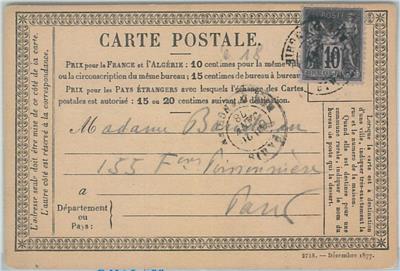 CARTE POSTALE.
POSTE
10
PRIX pour la FRANCE et l'ALGÉRIE : 10 centimes pour la même
ou la circonscription du même bureau ; 15 centimes de bureau à bureau.
PRIX pour les PAYS ÉTRANGERS avec lesquels l'échange des Cartes
postales est autorisé : 15 et 20 centimes suivant destination.
Madame
155
Paris
Département
ou
Pays :
L'adresse seule doit être mise de ce côté de la carte.
L'autre côté est réservé à la correspondance.
Lorsque la carte est à destination
d'une ville, indiquer très-exactement la
rue et le numéro de la maison.
Quand elle est destinée pour une
commune rurale, indiquer le nom du
bureau de poste qui la dessert.
2718. — Décembre 1877.